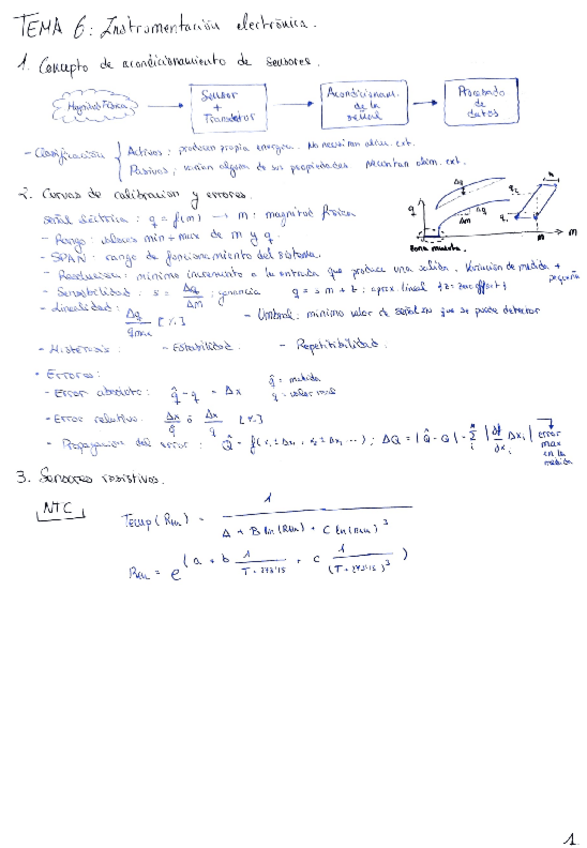 TEMA 6: Instrumentación electrónica.
1. Concepto de acondicionamiento de sensores.
Magnitud Física
Sensor + Transductor
Acondicionam. de la señal
Procesado de datos
- Clasificación
Activos: producen propia energía. No necesitan alim. ext.
Pasivos: varían alguna de sus propiedades. Necesitan alim. ext.
2. Curvas de calibracion y errores.
señal eléctrica: q = f(m) → m: magnitud física
- Rango: valores min ÷ max de m y q.
- SPAN: rango de funcionamiento del sistema.
- Resolucion: minimo incremento a la entrada que produce una salida. Variacion de medida + pequeña
- Sensibilidad: s = Δq/ΔM; ganancia q = s m + z; aprox. lineal
- Linealidad: Δq/qmax [%]
- Umbral: minimo valor de señal en que se puede detectar
Δq
Δm
q
zona muerta.
m
- Histéresis
- Estabilidad.
- Repetibilidad.
- Errores:
- Error absoluto: q̂ - q = Δx
q̂ = medida
q = valor real
- Error relativo: Δx/q̂ ó Δx/q [%]
- Propagacion del error:
error max en la medida
3. Sensores resistivos.
NTC
Temp (Rm) = 1 / (A + B ln(Rm) + C ln(Rm)³)
Rm = e^(a + b 1/(T + 273'15) + c 1/(T + 273'15)³)
1